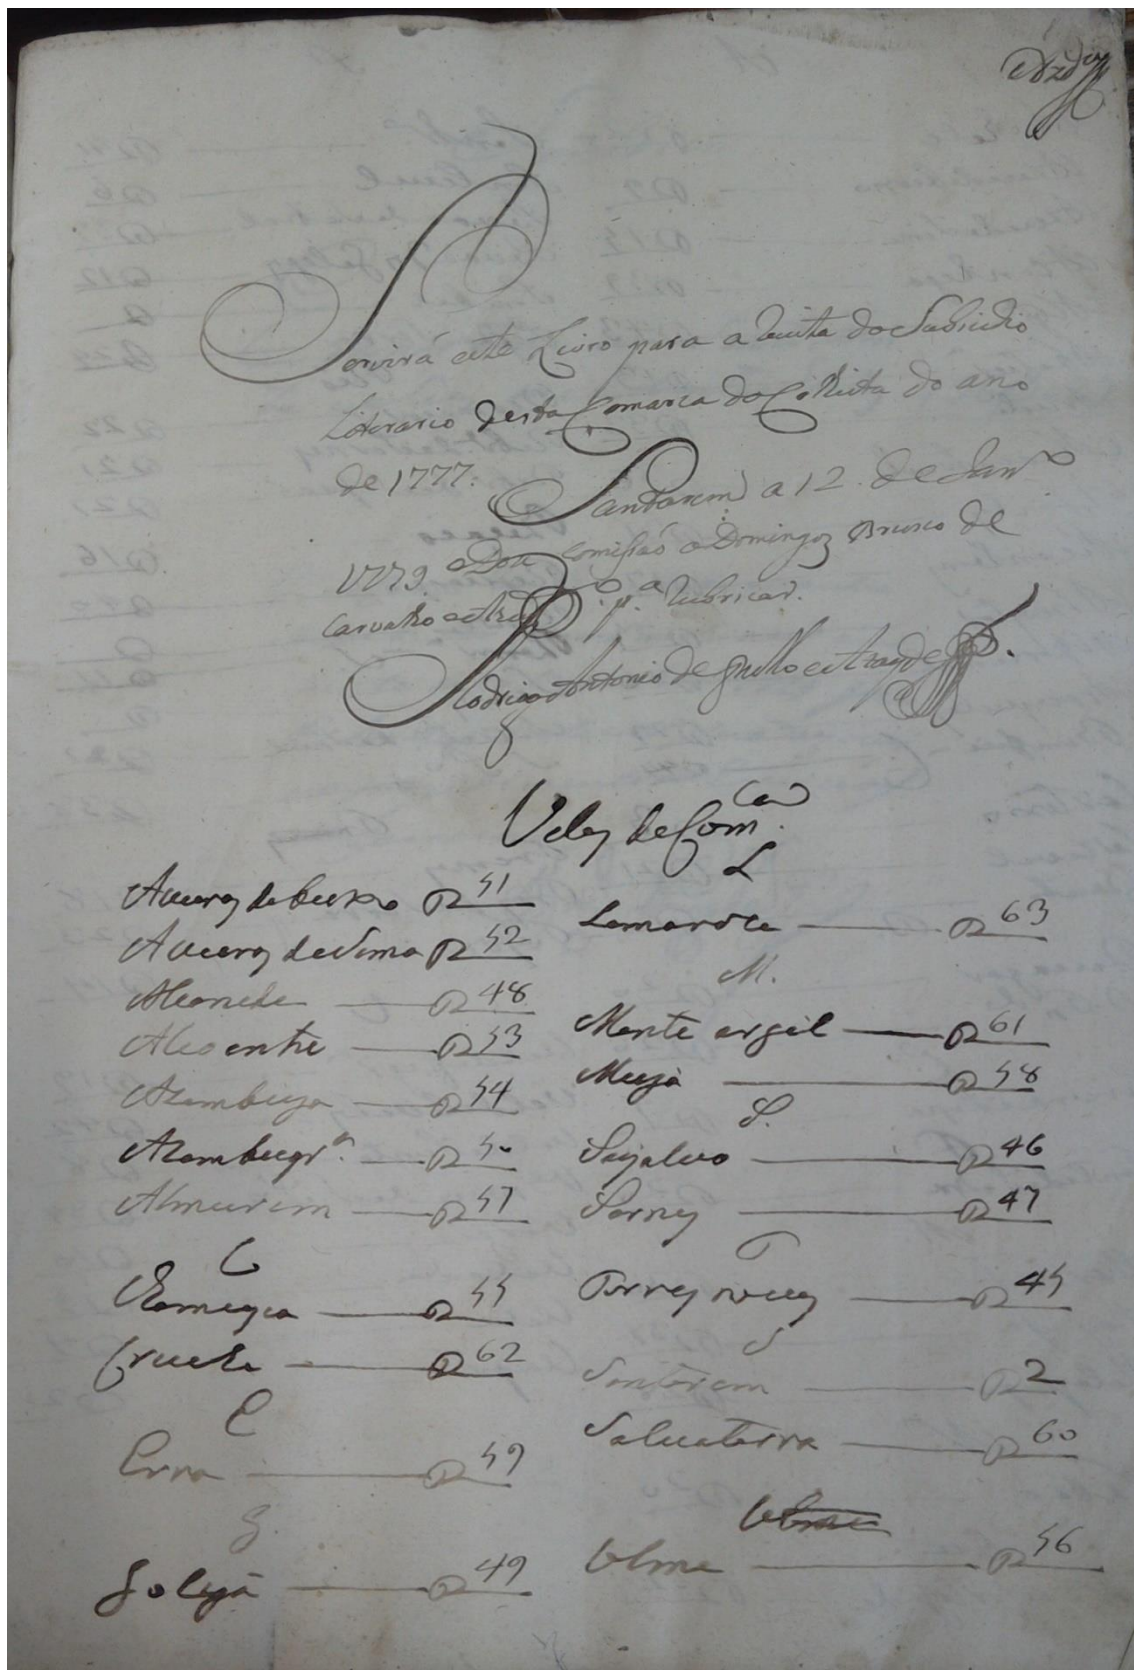 Servirá este Livro para a Receita do Subsidio
Literario desta Comarca da Colleita do ano
de 1777. Santarem a 12 de Jan.ro
1779. e Dou Comissaõ a Domingos Bruno de
Carvalho p.a Rubricar.
Rodrigo Antonio de Mello
Vilas da Com.ca
Aveiras de Sima 52
Alcanede 48
Alcoentre 53
Azambuja 54
Azambugr.a 50
Almeirim 57
C
Chamusca 55
Cruche 62
E
Erra 59
G.
Golegã 49
L
Lamaroza 63
M.
Monte argil 61
Mugã 58
P.
Pernes 47
T
Torres novas 45
S
Santarem 2
Salvaterra 60
Ulme
Ulme 56